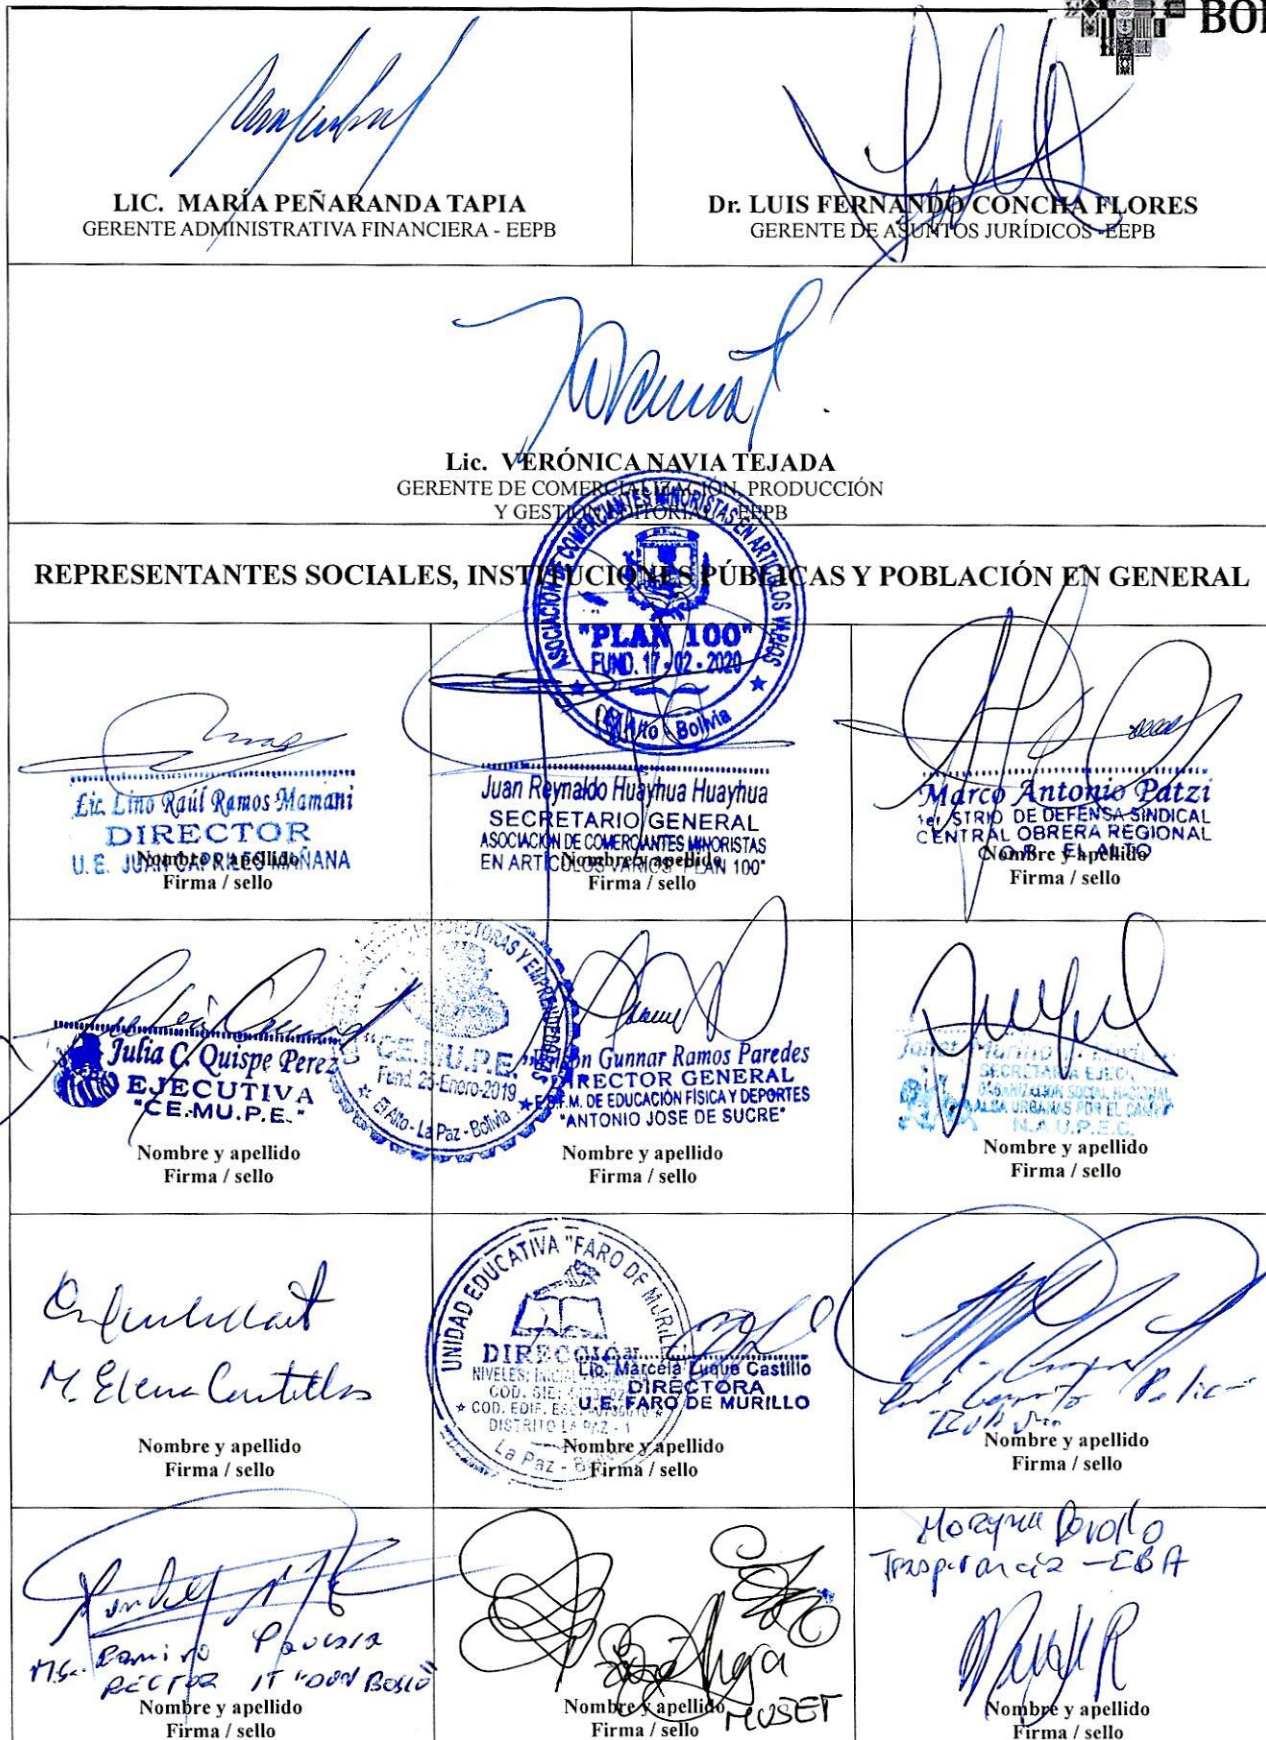 LIC. MARÍA PEÑARANDA TAPIA
GERENTE ADMINISTRATIVA FINANCIERA - EEPB
Dr. LUIS FERNANDO CONCHA FLORES
GERENTE DE ASUNTOS JURÍDICOS - EEPB
Lic. VERÓNICA NAVIA TEJADA
GERENTE DE COMERCIALIZACIÓN, PRODUCCIÓN
Y GESTIÓN EDITORIAL - EEPB
ASOCIACIÓN DE COMERCIANTES MINORISTAS EN ARTICULOS VARIOS
"PLAN 100"
FUND. 17-02-2020
El Alto - Bolivia
REPRESENTANTES SOCIALES, INSTITUCIONES PÚBLICAS Y POBLACIÓN EN GENERAL
Lic. Lino Raúl Ramos Mamani
DIRECTOR
U.E. JUAN CAPRILES MAÑANA
Nombre y apellido
Firma / sello
Juan Reynaldo Huayhua Huayhua
SECRETARIO GENERAL
ASOCIACIÓN DE COMERCIANTES MINORISTAS
EN ARTÍCULOS VARIOS "PLAN 100"
Nombre y apellido
Firma / sello
Marco Antonio Patzi
1er STRIO DE DEFENSA SINDICAL
CENTRAL OBRERA REGIONAL
C.O.R. EL ALTO
Nombre y apellido
Firma / sello
Julia C. Quispe Perez
EJECUTIVA
"CE.MU.P.E."
Nombre y apellido
Firma / sello
"CE.MU.P.E."
Fund. 25-Enero-2019
El Alto - La Paz - Bolivia
Gunnar Ramos Paredes
DIRECTOR GENERAL
E.S.F.M. DE EDUCACIÓN FÍSICA Y DEPORTES
"ANTONIO JOSE DE SUCRE"
Nombre y apellido
Firma / sello
SECRETARIA EJEC
ORGANIZACIÓN SOCIAL NACIONAL
URBANAS POR EL CAMBIO
Nombre y apellido
Firma / sello
M. Elena
Nombre y apellido
Firma / sello
UNIDAD EDUCATIVA "FARO DE MURILLO
DIRECCIÓN
DISTRITO LA PAZ - 1
La Paz - Bolivia
Lic. Marcela Luque Castillo
DIRECTORA
U.E. FARO DE MURILLO
Nombre y apellido
Firma / sello
Nombre y apellido
Firma / sello
MSc. Ramiro
RECTOR IT "DON BOSCO"
Nombre y apellido
Firma / sello
MUSET
Nombre y apellido
Firma / sello
Trasparancia - EBA
Nombre y apellido
Firma / sello